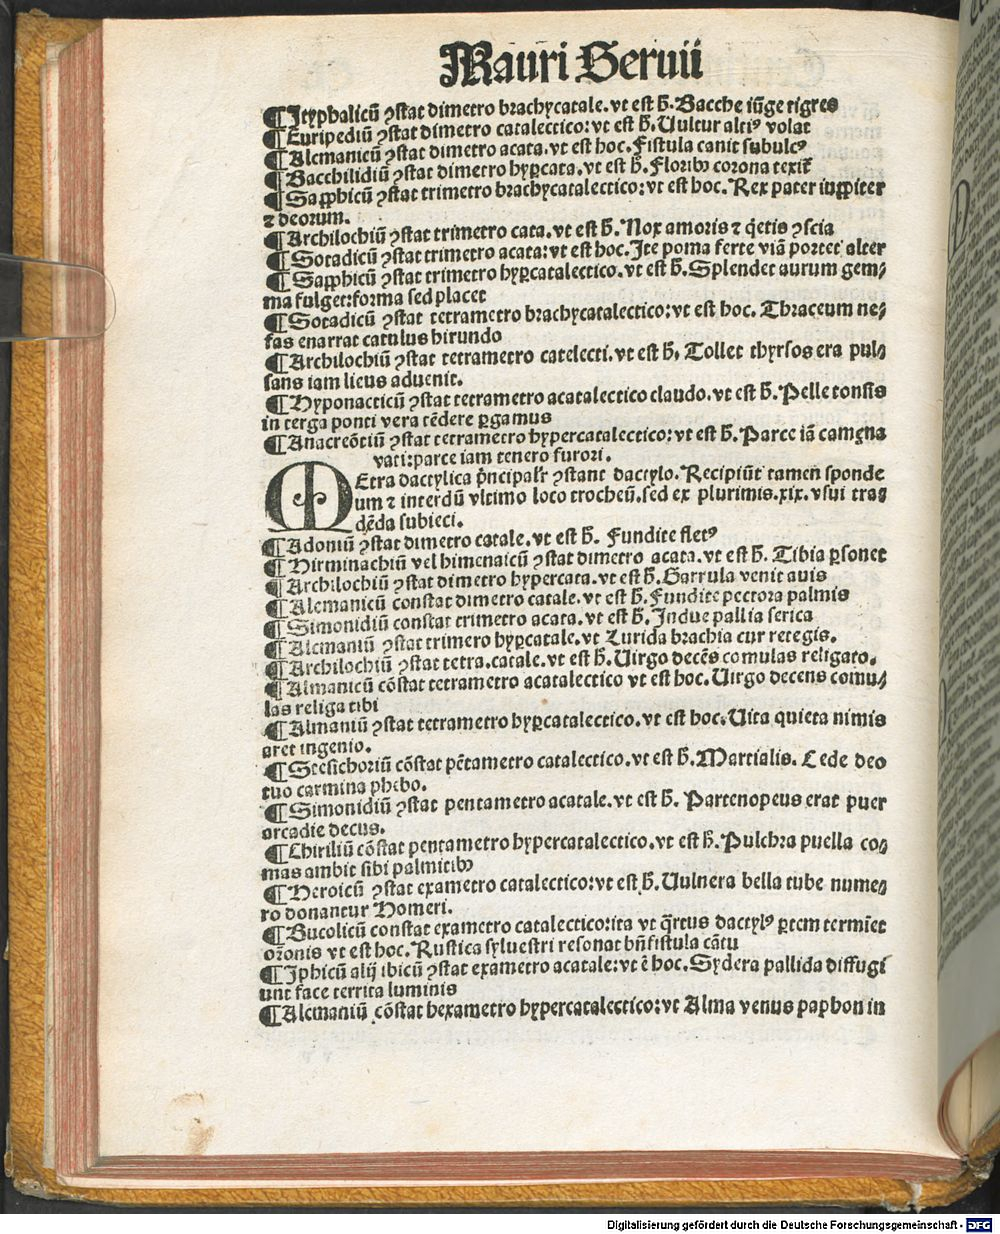 Mauri Seruii
¶Ityphalicū ꝯstat dimetro brachycatale. vt est h̄. Bacche iūge tigres
¶Euripediū ꝯstat dimetro catalectico: vt est h̄. Uultur altiꝰ volat
¶Alcmanicū ꝯstat dimetro acata. vt est hoc. Fistula canit subulcꝰ
¶Bacchilidiū ꝯstat dimetro hyꝑcata. vt est h̄. Floribꝰ corona texit̄
¶Sapphicū ꝯstat trimetro brachycatalectico: vt est hoc. Rex pater iuppiter
⁊ deorum.
¶Archilochiū ꝯstat trimetro cata. vt est h̄. Nox amoris ⁊ q̄etis ꝯscia
¶Sotadicū ꝯstat trimetro acata: vt est hoc. Ite poma ferte viā portet alter
¶Sapphicū ꝯstat trimetro hyꝑcatalectico. vt est h̄. Splendet aurum gem⸗
ma fulget: forma sed placet
¶Sotadicū ꝯstat tetrametro brachycatalectico: vt est hoc. Thraceum ne⸗
fas enarrat catulus hirundo
¶Archilochiū ꝯstat tetrametro catelecti. vt est h̄. Tollet thyrsos era pul⸗
sans iam lieus aduenit.
¶Hyponacticū ꝯstat tetrametro acatalectico claudo. vt est h̄. Pelle tonsis
in terga ponti vera tēdere ꝑgamus
¶Anacreōtiū ꝯstat tetrametro hypercatalectico: vt est h̄. Parce iā camęna
vati: parce iam tenero furori.
MEtra dactylica p̄ncipalr̄ ꝯstant dactylo. Recipiūt tamen sponde
um ⁊ interdū vltimo loco trocheū. sed ex plurimis. xix. vsui tra⸗
dēda subieci.
¶Adoniū ꝯstat dimetro catale. vt est h̄. Fundite fletꝰ
¶Hirminachiū vel himenaicū ꝯstat dimetro acata. vt est h̄. Tibia ꝑsonet
¶Archilochiū ꝯstat dimetro hypercata. vt est h̄. Garrula venit auis
¶Alcmanicū constat dimetro catale. vt est h̄. Fundite pectora palmis
¶Simonidiū constat trimetro acata. vt est h̄. Indue pallia serica
¶Alcmaniū ꝯstat trimero hyꝑcatale. vt Lurida brachia cur retegis.
¶Archilochiū ꝯstat tetra. catale. vt est h̄. Uirgo decēs comulas religato.
¶Almanicū cōstat tetrametro acatalectico vt est hoc. Uirgo decens comu⸗
las religa tibi
¶Almaniū ꝯstat tetrametro hyꝑcatalectico. vt est hoc. Uita quieta nimis
aret ingenio.
¶Stesichoriū cōstat pētametro catalectico. vt est h̄. Martialis. Cede deo
tuo carmina phebo.
¶Simonidiū ꝯstat pentametro acatale. vt est h̄. Partenopeus erat puer
arcadie decus.
¶Chiriliū cōstat pentametro hypercatalectico. vt est h̄. Pulchra puella co⸗
mas ambit sibi palmitibꝰ
¶Heroicū ꝯstat exametro catalectico: vt est h̄. Uulnera bella tube nume⸗
ro donantur Homeri.
¶Bucolicū constat exametro catalectico: ita vt q̄rtus dactylꝰ ꝑtem termiēt
orōnis vt est hoc. Rustica syluestri resonat bn̄ fistula cātu
¶Iphicū alij ibicū ꝯstat exametro acatale: vt ē hoc. Sydera pallida diffugi
unt face territa luminis
¶Alcmaniū cōstat hexametro hypercatalectico: vt Alma venus paphon in
Digitalisierung gefördert durch die Deutsche Forschungsgemeinschaft - DFG